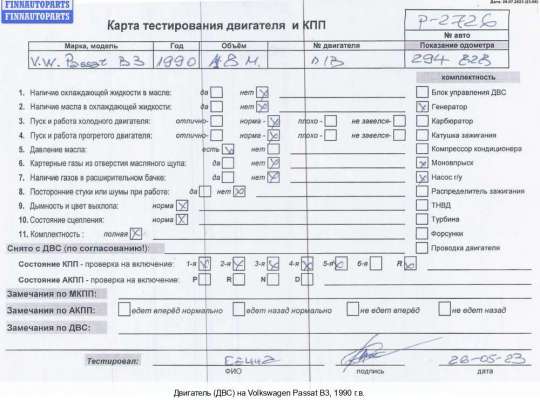 FINNAUTOPARTS
FINNAUTOPARTS
Карта тестирования двигателя и КПП
P-2726
№ авто
Марка, модель Год Объём № двигателя Показание одометра
V.W. Passat B3 1990 1.8 М. 294 828
комплектность
1. Наличие охлаждающей жидкости в масле: да нет
2. Наличие масла в охлаждающей жидкости: да нет
3. Пуск и работа холодного двигателя: отлично- норма - плохо- не завелся-
4. Пуск и работа прогретого двигателя: отлично- норма - плохо- не завелся-
5. Давление масла: есть нет
6. Картерные газы из отверстия масляного щупа: да нет
7. Наличие газов в расширительном бачке: да нет
8. Посторонние стуки или шумы при работе: да нет
9. Дымность и цвет выхлопа: норма
10. Состояние сцепления: норма
11. Комплектность : полная
Блок управления ДВС
Генератор
Карбюратор
Катушка зажигания
Компрессор кондиционера
Моновпрыск
Насос г/у
Распределитель зажигания
ТНВД
Турбина
Форсунки
Проводка двигателя
Снято с ДВС (по согласованию!):
Состояние КПП - проверка на включение: 1-я 2-я 3-я 4-я 5-я 6-я R
Состояние АКПП - проверка на включение: P R N D
Замечания по МКПП:
Замечания по АКПП: едет вперёд нормально едет назад нормально не едет вперёд не едет назад
Замечания по ДВС:
Тестировал: 26-05-23
ФИО подпись дата
Двигатель (ДВС) на Volkswagen Passat B3, 1990 г.в.